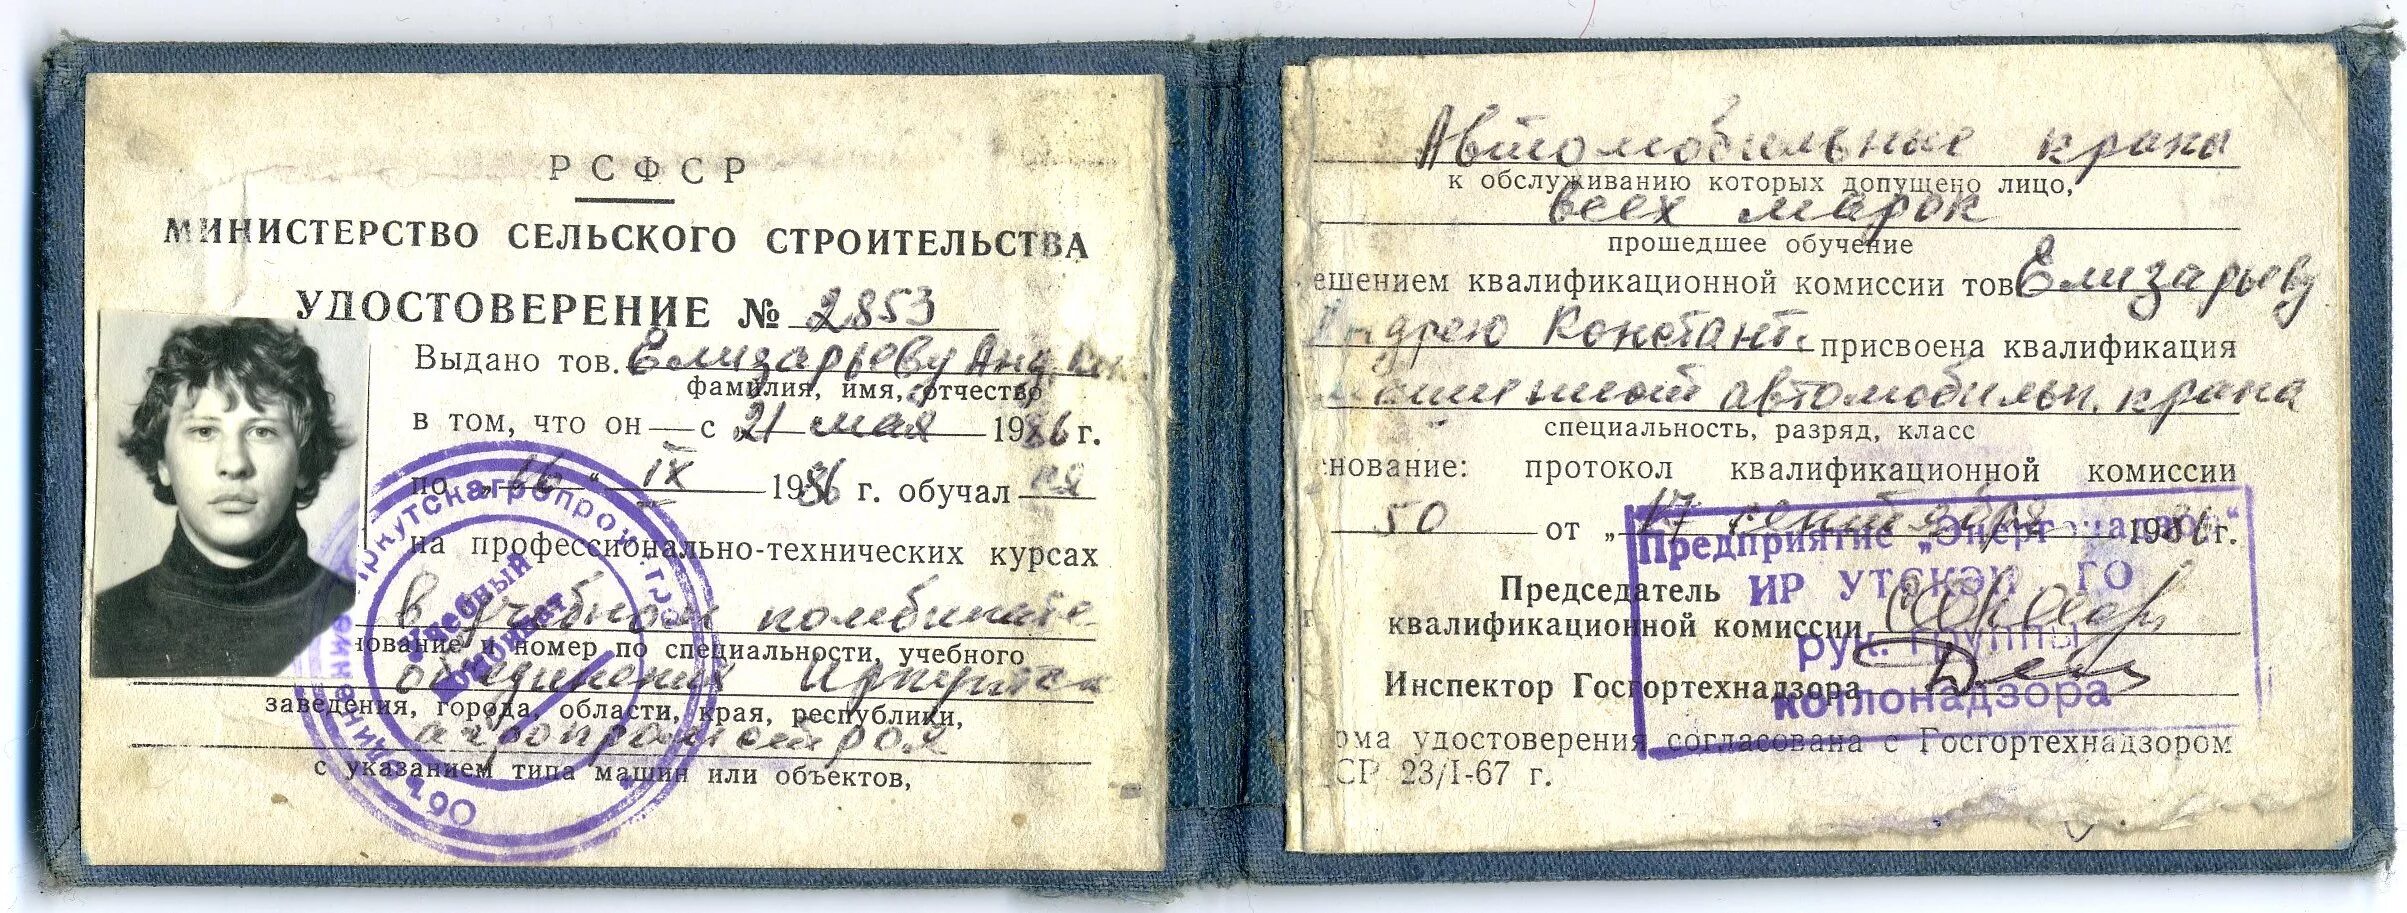 РСФСР
МИНИСТЕРСТВО СЕЛЬСКОГО СТРОИТЕЛЬСТВА
УДОСТОВЕРЕНИЕ № 2853
Выдано тов. Елизарьеву Анд. Кон.
фамилия, имя, отчество
в том, что он — с 21 мая 1986 г.
по „16“ IX 1986 г. обучал ся
на профессионально-технических курсах
в учебном комбинате
нование и номер по специальности, учебного
объединения Иркутск
заведения, города, области, края, республики,
агропромстроя
с указанием типа машин или объектов,
Объединение Иркутскагропромстрой
Учебный
комбинат
Автомобильные крана
к обслуживанию которых допущено лицо,
всех марок
прошедшее обучение
ешением квалификационной комиссии тов Елизарьеву
Андрею Констант. присвоена квалификация
машинист автомобильн. крана
специальность, разряд, класс
нование: протокол квалификационной комиссии
50 от „17 сентября 1986 г.
Председатель
квалификационной комиссии
Инспектор Госгортехнадзора
рма удостоверения согласована с Госгортехнадзором
СР 23/I-67 г.
Предприятие „Энергонадзор“
рук. группы
котлонадзора